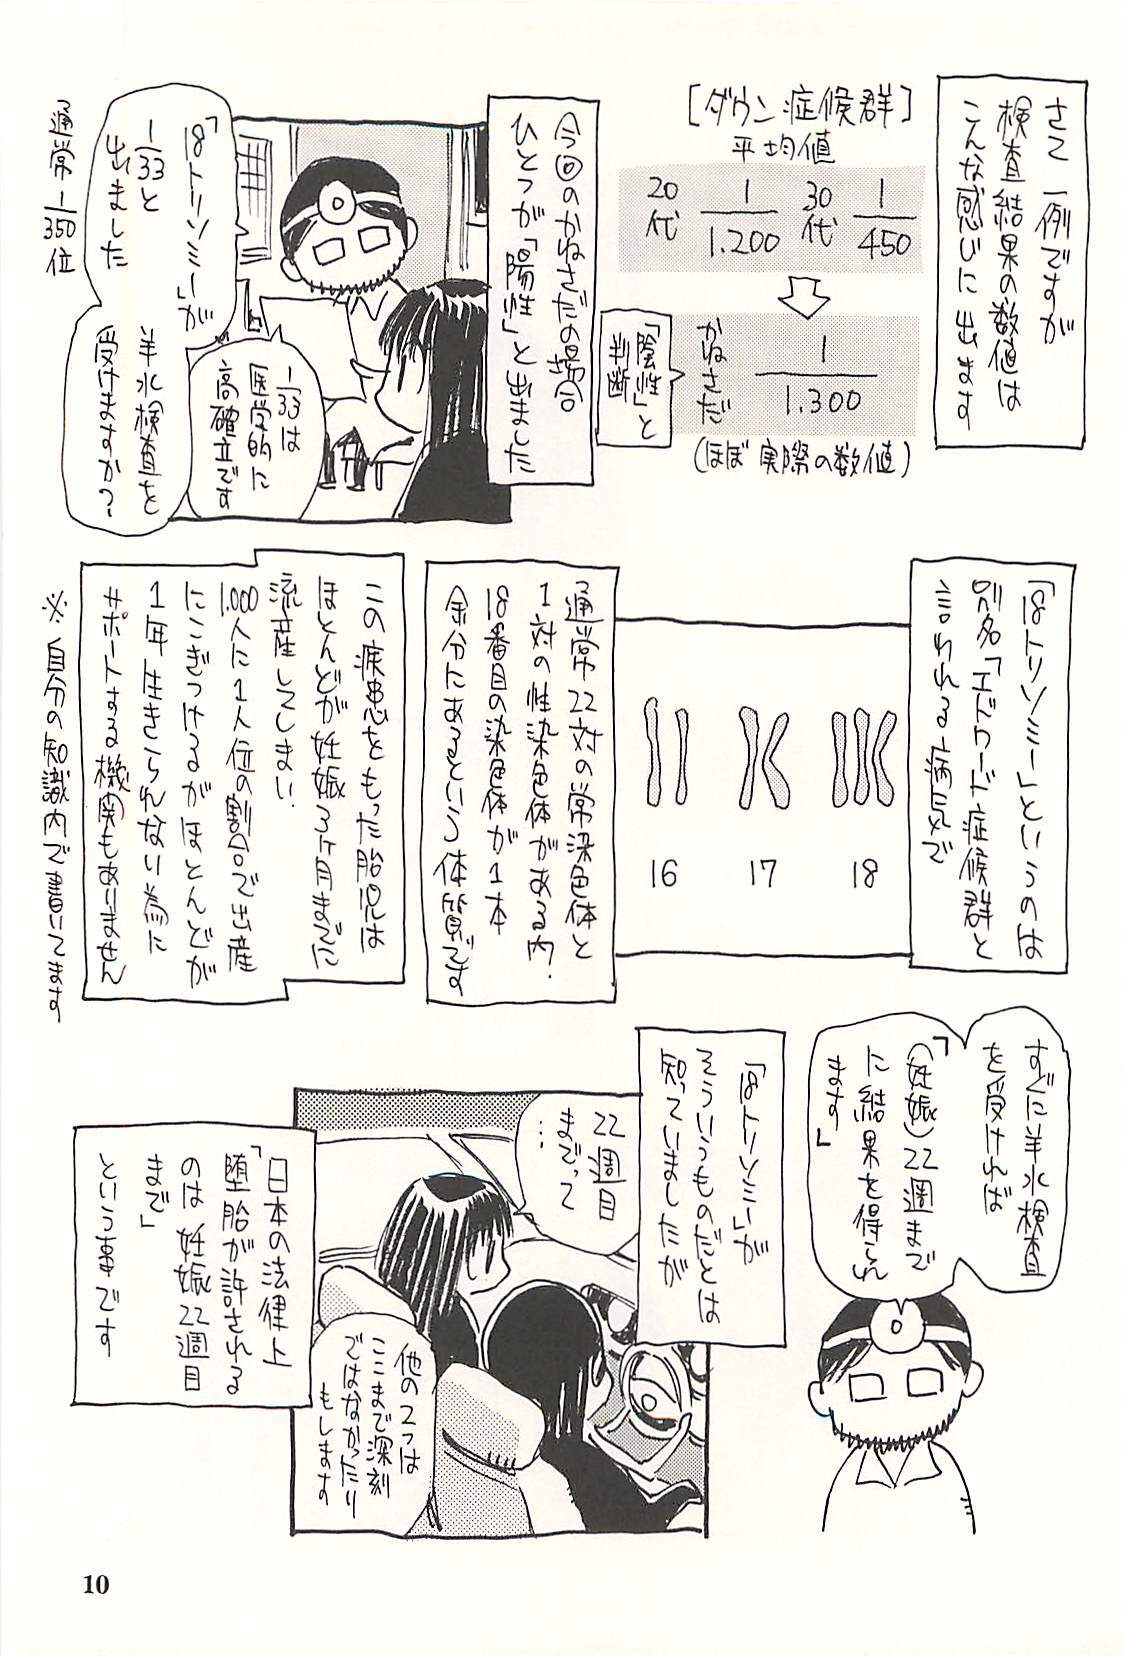 さて 一例ですが
検査結果の数値は
こんな感じに出ます
[ダウン症候群]
平均値
20代 1/1.200
30代 1/450
かねさだ 1/1.300
(ほぼ実際の数値)
「陰性」と
判断
今回のかねさだの場合
ひとつが「陽性」と出ました
「18トリソミー」が
1/33と
出ました
通常1/350位
1/33は
医学的に
高確立です
羊水検査を
受けますか?
「18トリソミー」というのは
別名「エドワード症候群」と
言われる病気で
16
17
18
通常22対の常染色体と
1対の性染色体がある内、
18番目の染色体が1本
余分にあるという体質です
この疾患をもった胎児は
ほとんどが妊娠3ヶ月までに
流産してしまい、
1,000人に1人位の割合で出産
にこぎつけるがほとんどが
1年生きられない為に
サポートする機関もありません
※自分の知識内で書いてます
すぐに羊水検査
を受ければ
「(妊娠)22週まで
に結果を得られ
ます」
「18トリソミー」が
そういうものだとは
知っていましたが
22週目
までって
…
他の2つは
ここまで深刻
ではなかったり
もします
「日本の法律上
堕胎が許される
のは妊娠22週目
まで」
という事です
10